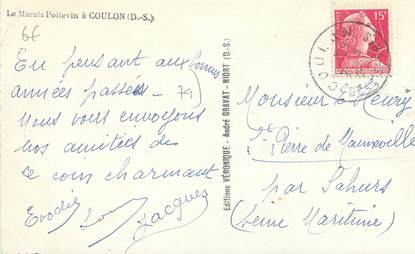 Le Marais Poitevin à COULON (D.-S.)
6€
En pensant aux bonnes
années passées -
79
Nous vous envoyons
nos amitiés de
ce coin charmant
Jacques
Editions VÉRONIQUE - André GRAVAT - NIORT (D.-S.)
15F
COULON
Monsieur Fleury
St Pierre de Manneville
par Sahurs
(Seine Maritime)